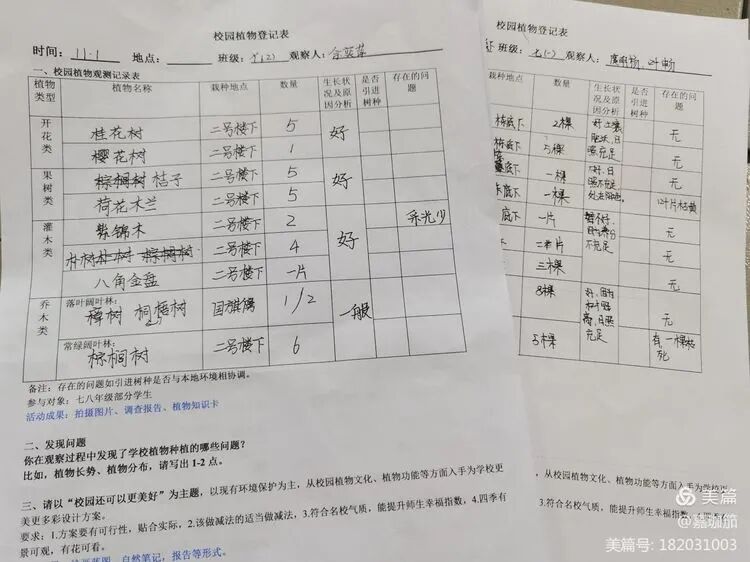 校园植物登记表
时间：11.1 地点： 班级：七(2) 观察人：
一、校园植物观测记录表
植物类型 植物名称 栽种地点 数量 生长状况及原因分析 是否引进树种 存在的问题
开花类 桂花树 二号楼下 5 好
樱花树 二号楼下 1
果树类 棕榈树 桔子 二号楼下 5 好
荷花木兰 二号楼下 5
灌木类 紫锦木 二号楼下 2 好 采光少
棕榈树 二号楼下 4
八角金盘 二号楼下 一片
乔木类 落叶阔叶林：
樟树 梧桐树 国旗侧 1/2 一般
常绿阔叶林：
棕榈树 二号楼下 6
备注：存在的问题如引进树种是否与本地环境相协调。
参与对象：七八年级部分学生
活动成果：拍摄图片、调查报告、植物知识卡
二、发现问题
你在观察过程中发现了学校植物种植的哪些问题？
比如，植物长势、植物分布，请写出1-2点。
三、请以“校园还可以更美好”为主题，以现有环境保护为主，从校园植物文化、植物功能等方面入手为学校更
美更多彩设计方案。
要求：1.方案要有可行性，贴合实际，2.该做减法的适当做减法，3.符合名校气质，能提升师生幸福指数，4.四季有
景可观，有花可看。
自然笔记，报告等形式。
校园植物登记表
班级：七(一) 观察人：
栽种地点 数量 生长状况及原因分析 是否引进树种 存在的问题
底下 2棵 好土壤肥沃，日照充足 无
底下 5棵 无
底下 一棵 无
底下 一棵 叶片枯黄
底下 一片 不充足 无
片
三棵 无
8棵 充足 无
5棵 有一棵枯死
，从校园植物文化、植物功能等方面入手为学校更
3.符合名校气质，能提升师生幸福指数，4.四季有
美篇
@嘉珈笳
美篇号：182031003